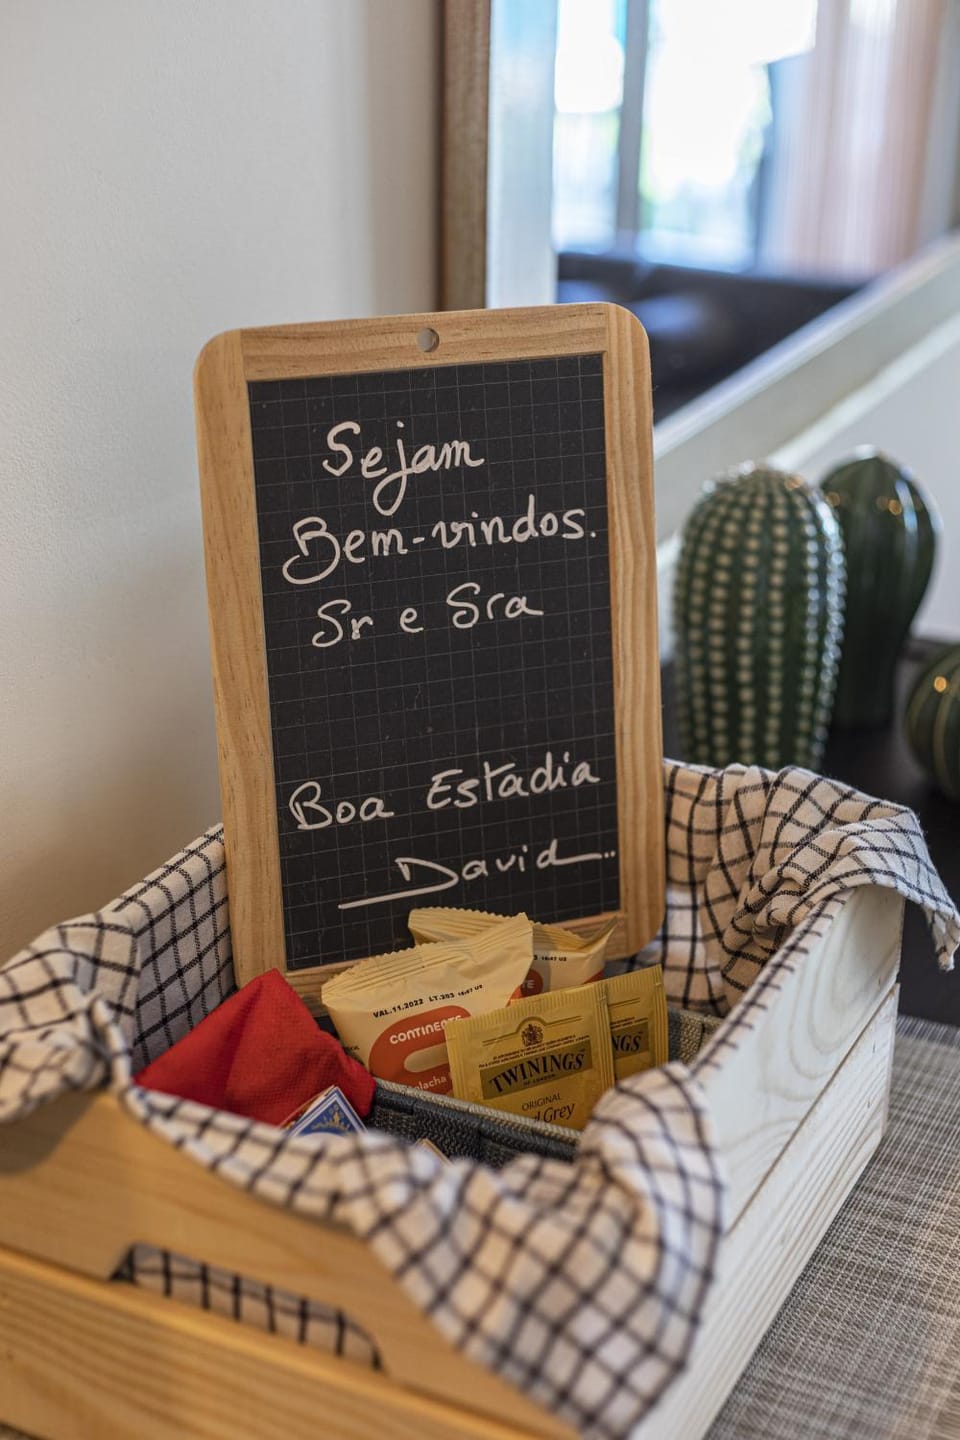 Sejam
Bem-vindos.
Sr e Sra
Boa Estadia
David..
VAL.11.2022 LT.203 16:47 U2
16:47 U2
CONTINENTE
TWININGS
OF LONDON
ORIGINAL
Grey
NGS